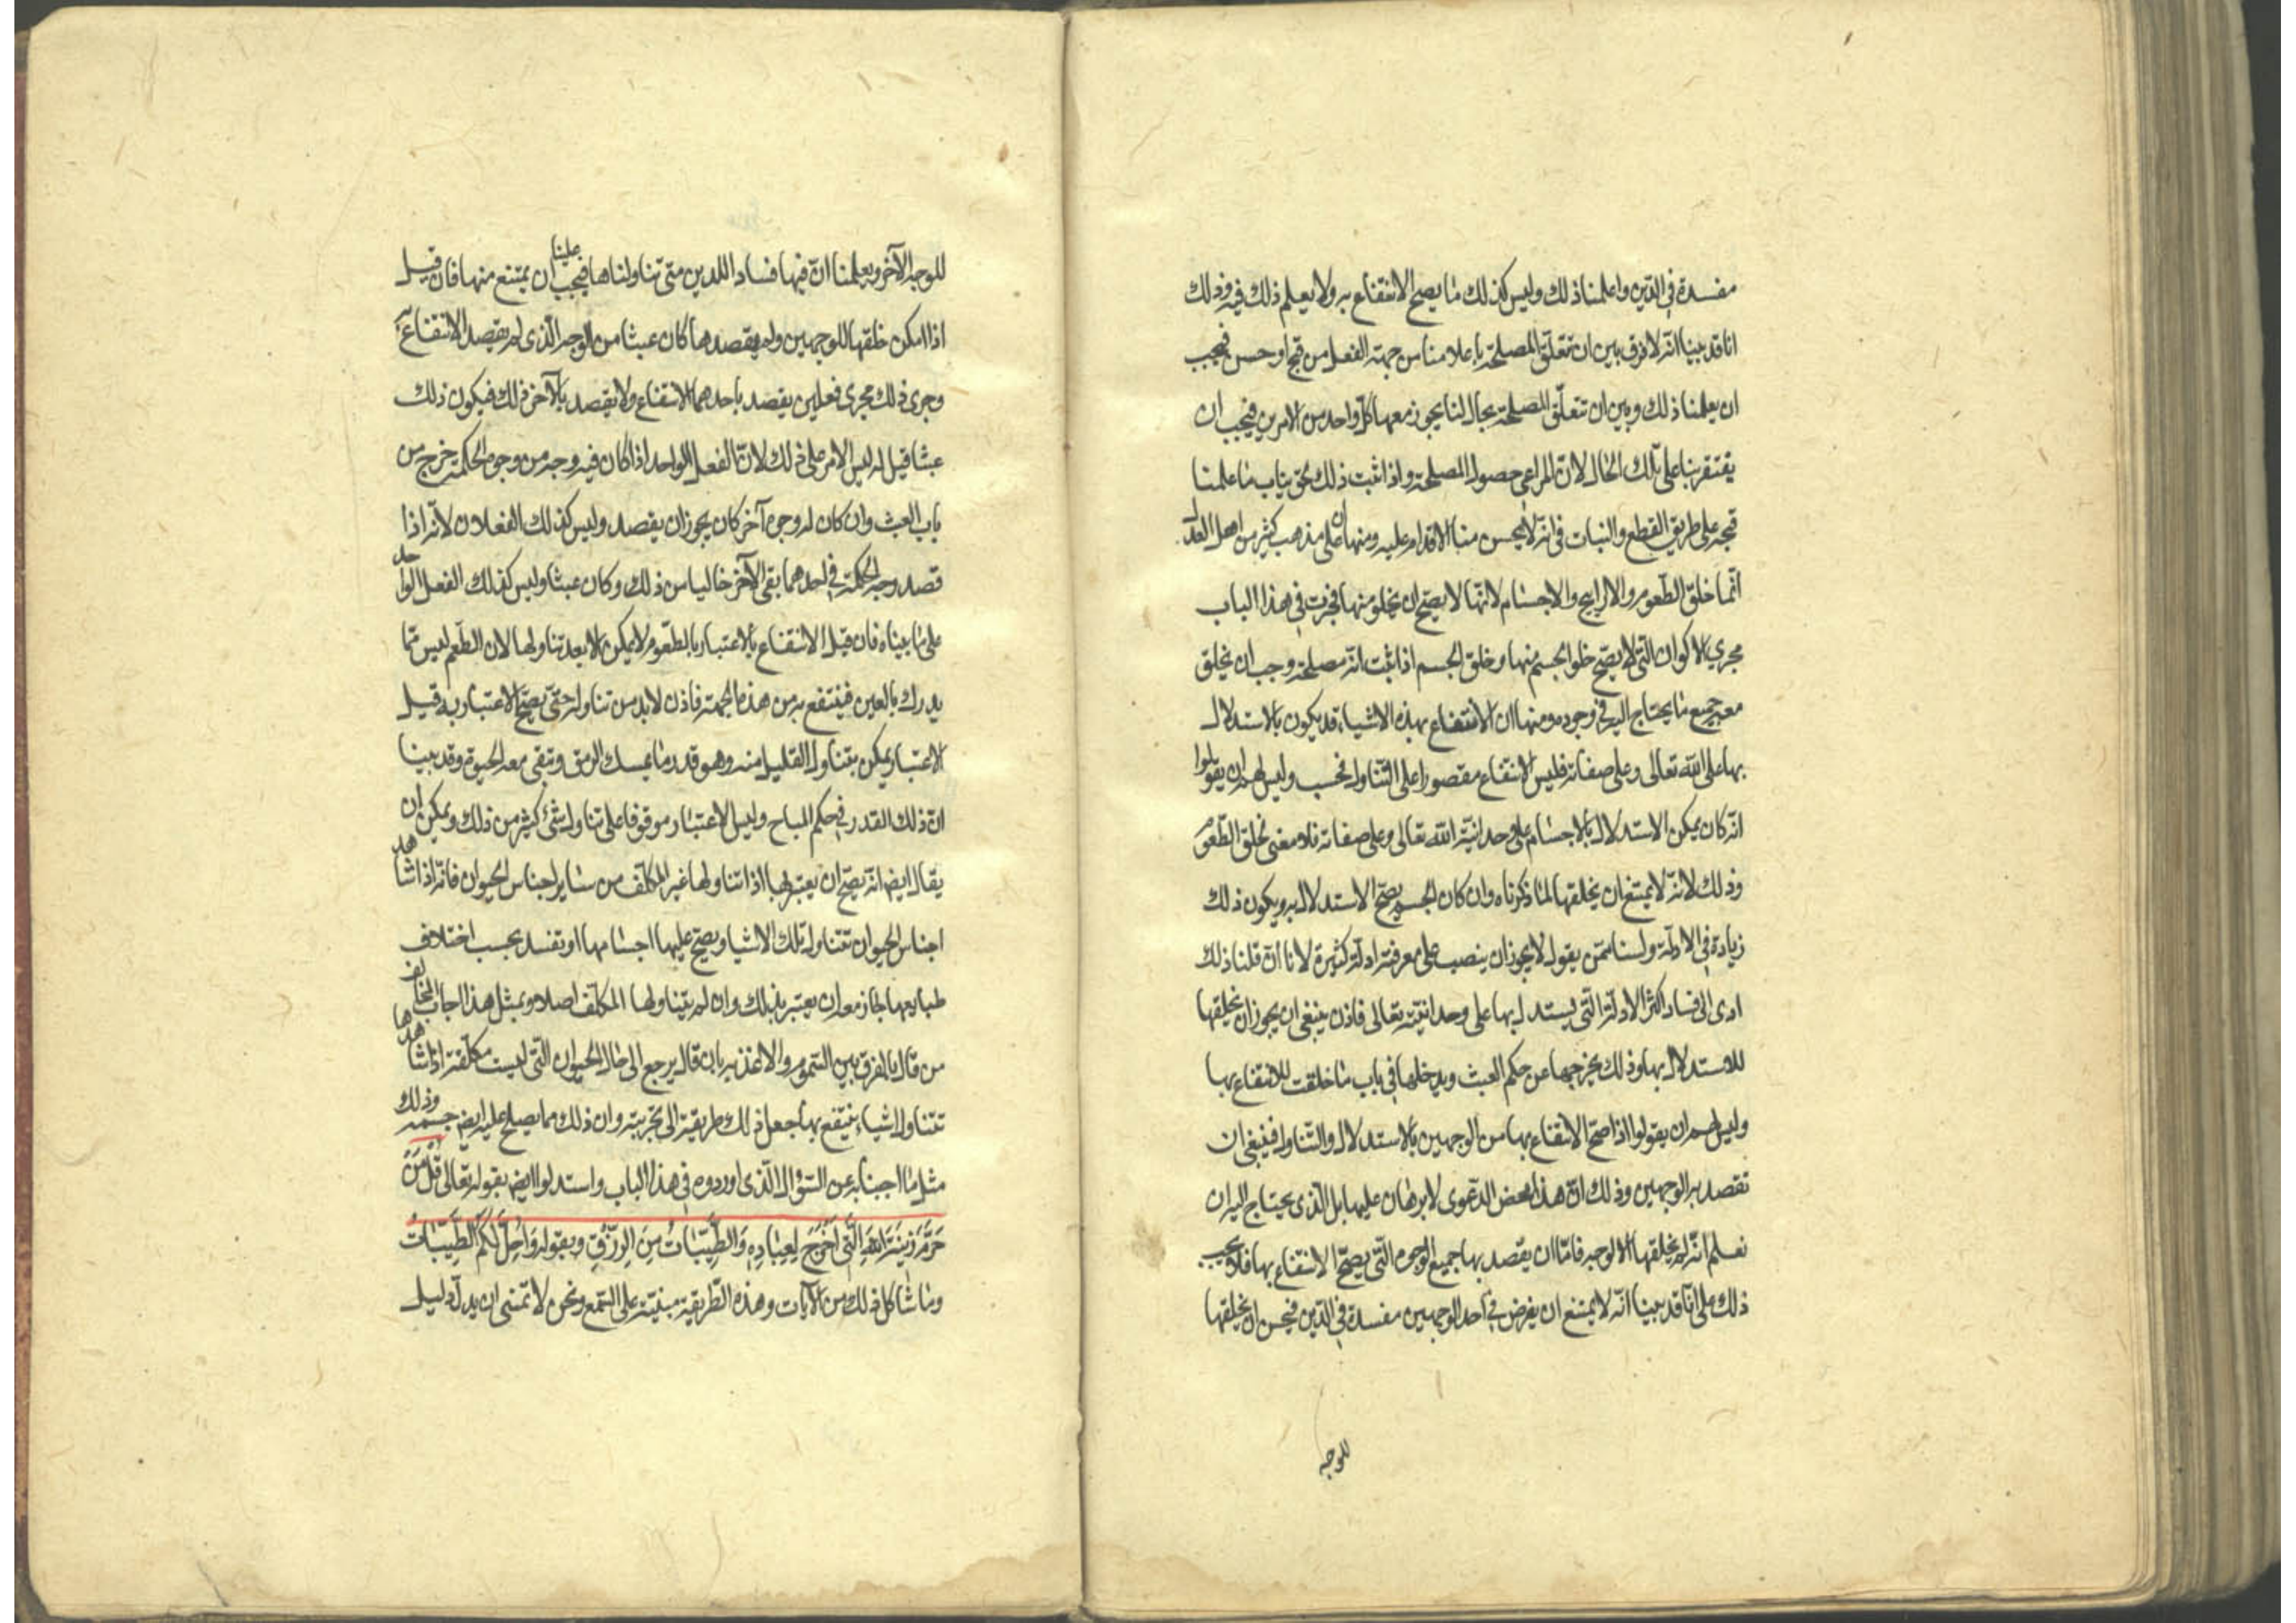 مفسدة في الدين واعلمنا ذلك وليس كذلك ما يصح الانتفاع به ولا يعلم ذلك فيه وذلك
انا قد بينا انه لا فرق بين ان تتعلق المصلحة باعلامنا من جهة الفعل من قبح او حسن فيجب
ان يعلمنا ذلك وبين ان تتعلق المصلحة بحال لنا يجوز معها كل واحد من الامرين فيجب ان
يقتقر بنا على تلك الحال لان المراعى حصول المصلحة واذا ثبت ذلك لحق بباب ما علمنا
قبحه على طريق القطع والثبات في انه لا يحسن منا الاقدام عليه ومنها ان على مذهب كثير من اهل العدل
انما خلق الطعوم والاراييح والاجسام لانها لا يصح ان يخلو منها فجرت في هذا الباب
مجرى الاكوان التي لا يصح خلو الجسم منها وخلق الجسم اذا ثبت انه مصلحة وجب ان يخلق
معه جميع ما يحتاج اليه في وجوده ومنها ان الانتفاع بهذه الاشياء قد يكون بالاستدلال
بها على الله تعالى وعلى صفاته فليس الانتفاع مقصورا على التناول فحسب وليس لهم ان يقولوا
انه كان يمكن الاستدلال بالاجسام على وحدانية الله تعالى وعلى صفاته فلا معنى لخلق الطعوم
وذلك لانه لا يمتنع ان يخلقها لما ذكرناه وان كان الجسم يصح الاستدلال به ويكون ذلك
زيادة في الادلة ولسنا ممن يقول لا يجوز ان ينصب على معرفته ادلة كثيرة لانا ان قلنا ذلك
ادى الى فساد اكثر الادلة التي يستدل بها على وحدانيته تعالى فاذن ينبغي ان يجوز ان يخلقها
للاستدلال بها وذلك يخرجها عن حكم العبث ويدخلها في باب ما خلقت للانتفاع بها
وليس لهم ان يقولوا اذا صح الانتفاع بها من الوجهين بالاستدلال والتناول فينبغي ان
تقصد به الوجهين وذلك ان هذا محض الدعوى لا برهان عليها بل الذي يحتاج اليه ان
نعلم انه لم يخلقها الا لوجه فاما ان يقصد بها جميع الوجوه التي يصح الانتفاع بها فلا يجب
ذلك على انا قد بينا انه لا يمتنع ان يفرض في احد الوجهين مفسدة في الدين فيحسن ان يخلقها
للوجه
للوجه الآخر ويعلمنا ان فيها فساد الدين متى تناولناها فيجب علينا ان يمتنع منها فان قيل
اذا امكن خلقها للوجهين ولم يقصدهما كان عبثا من الوجه الذي لم يقصد الانتفاع به
وجرى ذلك مجرى فعلين يقصد باحدهما الانتفاع ولا يقصد بالآخر ذلك فيكون ذلك
عبثا قيل له ليس الامر على ذلك لان الفعل الواحد اذا كان فيه وجه من وجوه الحكمة خرج من
باب العبث وان كان له وجوه آخر كان يجوز ان يقصد وليس كذلك الفعلان لانه اذا
قصد وجه الحكمة في احدهما بقي الآخر خاليا من ذلك وكان عبثا وليس كذلك الفعل الواحد
على ما بيناه فان قيل الانتفاع بالاعتبار بالطعوم لا يمكن الا بعد تناولها لان الطعم ليس مما
يدرك بالعين فينتفع به من هذه الجهة فاذن لا بد من تناوله حتى يصح الاعتبار به قيل
الاعتبار يمكن بتناول القليل منه وهو قدر ما يمسك الرمق وتبقى معه الحيوة وقد بينا
ان ذلك القدر في حكم المباح وليس الاعتبار موقوفا على تناول شيء كثير من ذلك ويمكن ان
يقال ايضا انه يصح ان يعتبر بها اذا تناولها غير المكلف من ساير اجناس الحيوان فانه اذا شاهد
اجناس الحيوان تتناول تلك الاشيا ويصح عليها اجسامها او تفسد بحسب اختلاف
طبايعها جاز معه ان يعتبر بذلك وان لم يتناولها المكلف اصلا وبمثل هذا اجاب المخالف
من قال بالفرق بين السموم والاغذية بان قال يرجع الى حال الحيوان التي ليست مكلفة اذا شاهدها
تتناول اشياء ينتفع بها جعل ذلك طريقة الى تجربته وان ذلك مما يصلح عليه ايضا جسمه وذلك
مثل ما اجبنا به عن السؤال الذي اوردوه في هذا الباب واستدلوا ايضا بقوله تعالى قُلْ مَنْ
حَرَّمَ زِينَةَ اللهِ الَّتِي اَخْرَجَ لِعِبَادِهِ وَالطَّيِّبَاتِ مِنَ الرِّزْقِ وبقوله وَاُحِلَّ لَكُمُ الطَّيِّبَاتُ
وما شاكل ذلك من الآيات وهذه الطريقة مبنية على السمع ونحن لا نمنع ان يدل دليل